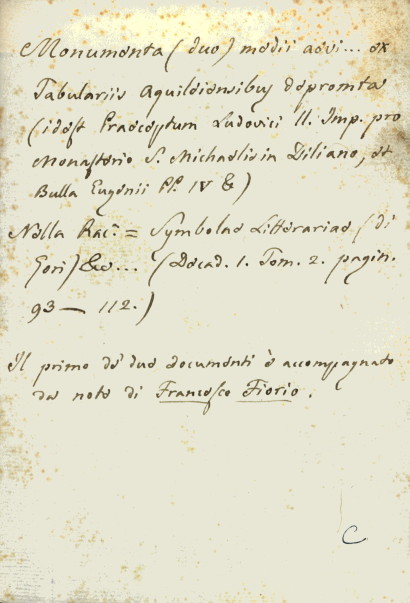 Monumenta (duo) medii aevi... ex
Tabulariis Aquilejensibus depromta
(idest Praeceptum Ludovici II. Imp. pro
Monasterio S. Michaelis in Diliano, et
Bulla Eugenii PP. IV &)
Nella Rac.ª = Symbolae Litterariae (di
Gori) &c... (Decad. 1. Tom. 2. pagin.
93 — 112.)
Il primo de' due documenti è accompagnato
da note di Francesco Florio.
C